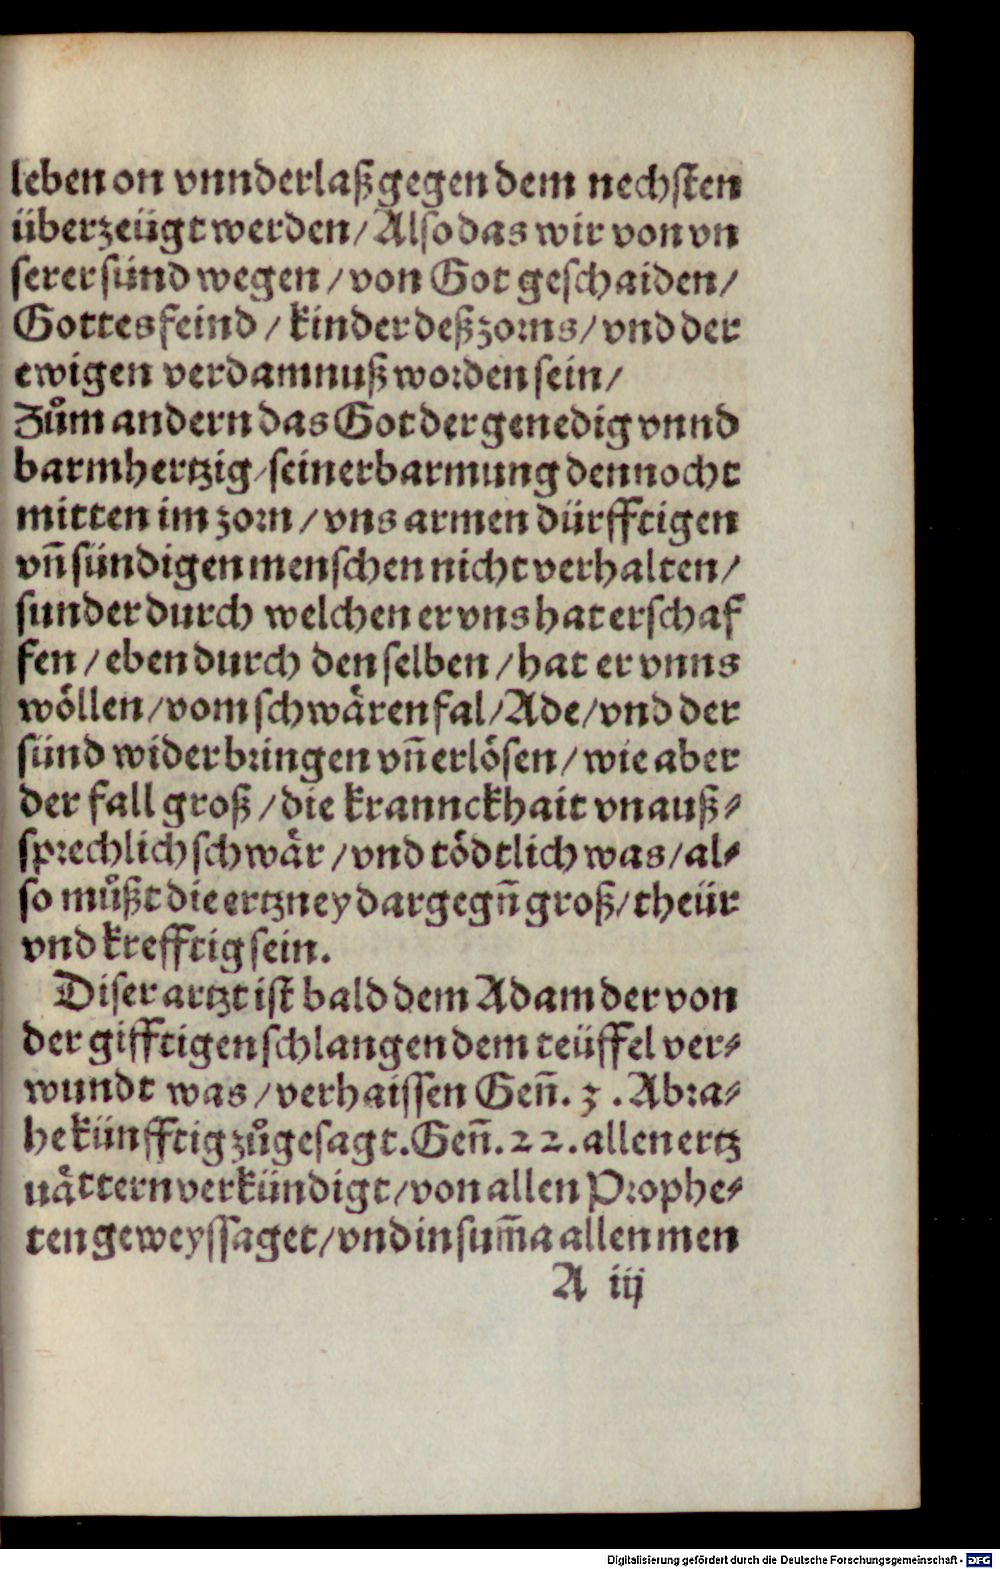 leben on vnnderlaß gegen dem nechsten
überzeügt werden/ Also das wir von vn
serer sünd wegen / von Got geschaiden/
Gottes feind / kinder deß zorns/ vnd der
ewigen verdamnuß worden sein/
Zům andern das Got der genedig vnnd
barmhertzig/ sein erbarmung dennocht
mitten im zorn / vns armen dürfftigen
vñ sündigen menschen nicht verhalten/
sunder durch welchen er vns hat erschaf
fen / eben durch den selben / hat er vnns
wöllen/ vom schwären fal/ Ade/ vnd der
sünd widerbringen vñ erlösen/ wie aber
der fall groß / die krannckhait vnauß⸗
sprechlich schwär / vnd tödtlich was/ al⸗
so můßt die ertzney dargegñ groß/ theür
vnd krefftig sein.
Diser artzt ist bald dem Adam der von
der gifftigen schlangen dem teüffel ver⸗
wundt was / verhaissen Geñ. 3 . Abra⸗
he künfftig zůgesagt. Geñ. 22. allen ertz
uättern verkündigt/ von allen Prophe⸗
ten geweyssaget/ vnd in sum̄a allen men
A iij
Digitalisierung gefördert durch die Deutsche Forschungsgemeinschaft - DFG